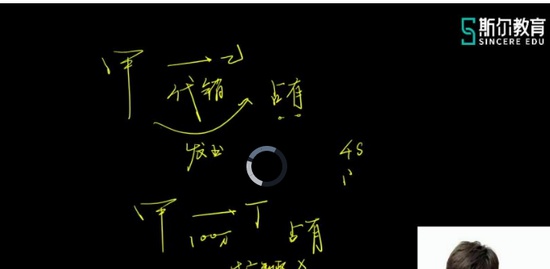 斯尔教育
SINCERE EDU
甲 → 乙
代销 占有
发出
4S
甲 → 丁
100万 占有